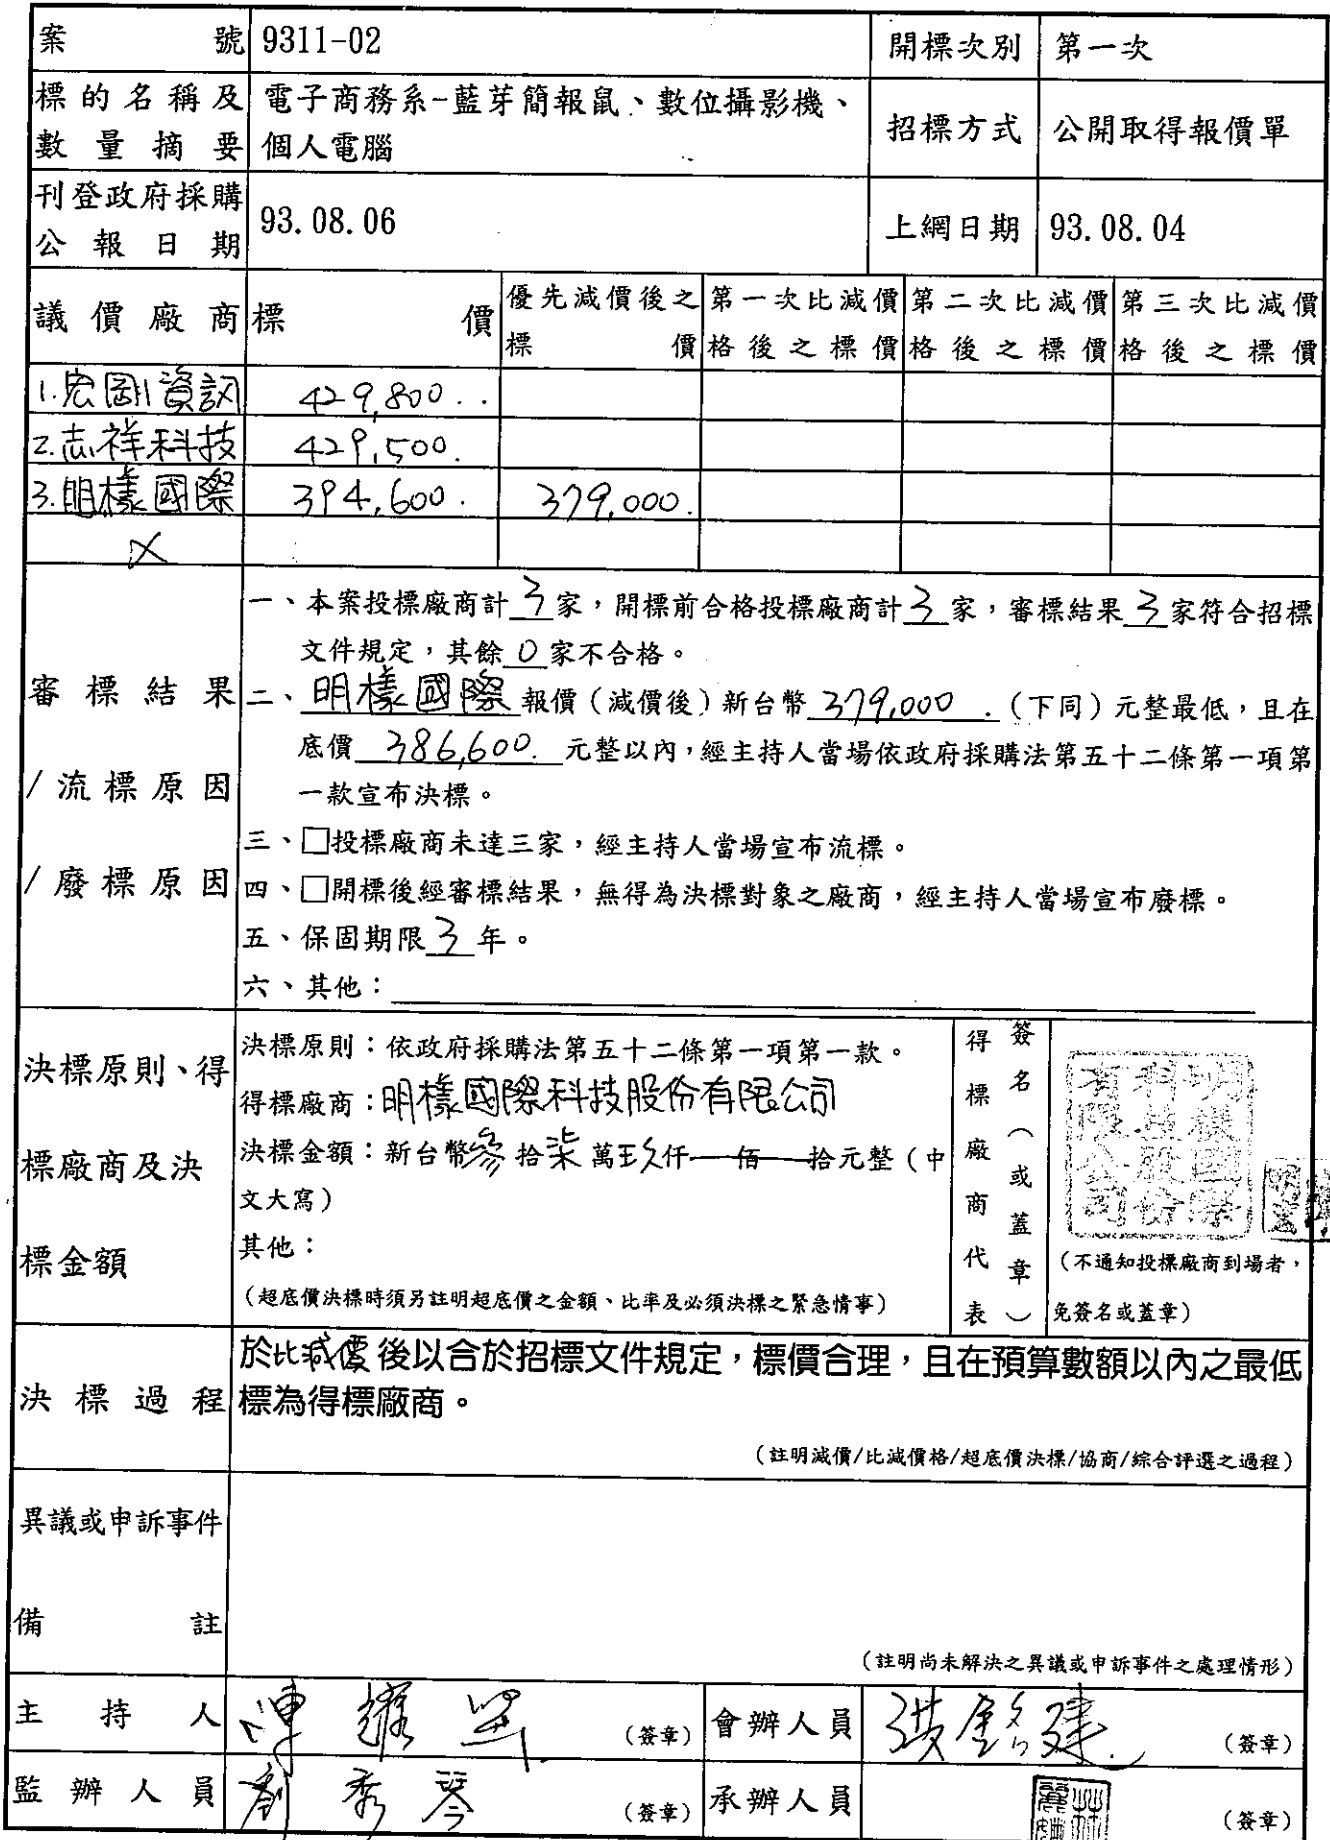 案號 9311-02 開標次別 第一次
標的名稱及 電子商務系-藍芽簡報鼠、數位攝影機、
數量摘要 個人電腦 招標方式 公開取得報價單
刊登政府採購
公報日期 93.08.06 上網日期 93.08.04
議價廠商 標價 優先減價後之 第一次比減價 第二次比減價 第三次比減價
標價 格後之標價 格後之標價 格後之標價
1.宏剛資訊 429,800.
2.志祥科技 429,500.
3.明檥國際 394,600. 379,000.
審標結果
/流標原因
/廢標原因
一、本案投標廠商計3家，開標前合格投標廠商計3家，審標結果3家符合招標
文件規定，其餘0家不合格。
二、明檥國際報價（減價後）新台幣379,000.（下同）元整最低，且在
底價386,600.元整以內，經主持人當場依政府採購法第五十二條第一項第
一款宣布決標。
三、□投標廠商未達三家，經主持人當場宣布流標。
四、□開標後經審標結果，無得為決標對象之廠商，經主持人當場宣布廢標。
五、保固期限3年。
六、其他：
決標原則、得
標廠商及決
標金額
決標原則：依政府採購法第五十二條第一項第一款。
得標廠商：明檥國際科技股份有限公司
決標金額：新台幣參拾柒萬玖仟佰拾元整（中
文大寫）
其他：
（超底價決標時須另註明超底價之金額、比率及必須決標之緊急情事）
得標廠商代表
簽名（或蓋章）
（不通知投標廠商到場者，
免簽名或蓋章）
決標過程
於比減價後以合於招標文件規定，標價合理，且在預算數額以內之最低
標為得標廠商。
（註明減價/比減價格/超底價決標/協商/綜合評選之過程）
異議或申訴事件
備註
（註明尚未解決之異議或申訴事件之處理情形）
主持人 （簽章） 會辦人員 （簽章）
監辦人員 劉秀琴 （簽章） 承辦人員 （簽章）